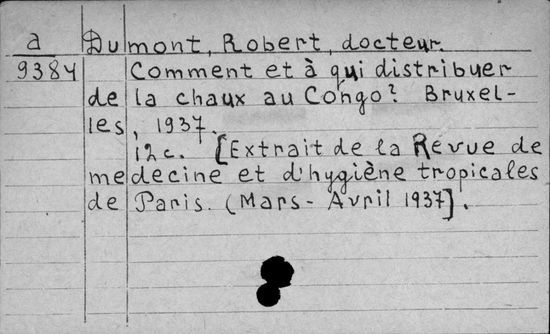 a Dumont, Robert, docteur.
9384 Comment et à qui distribuer
de la chaux au Congo? Bruxel-
les, 1937.
12c. [Extrait de la Revue de
medecine et d'hygiène tropicales
de Paris. (Mars - Avril 1937].